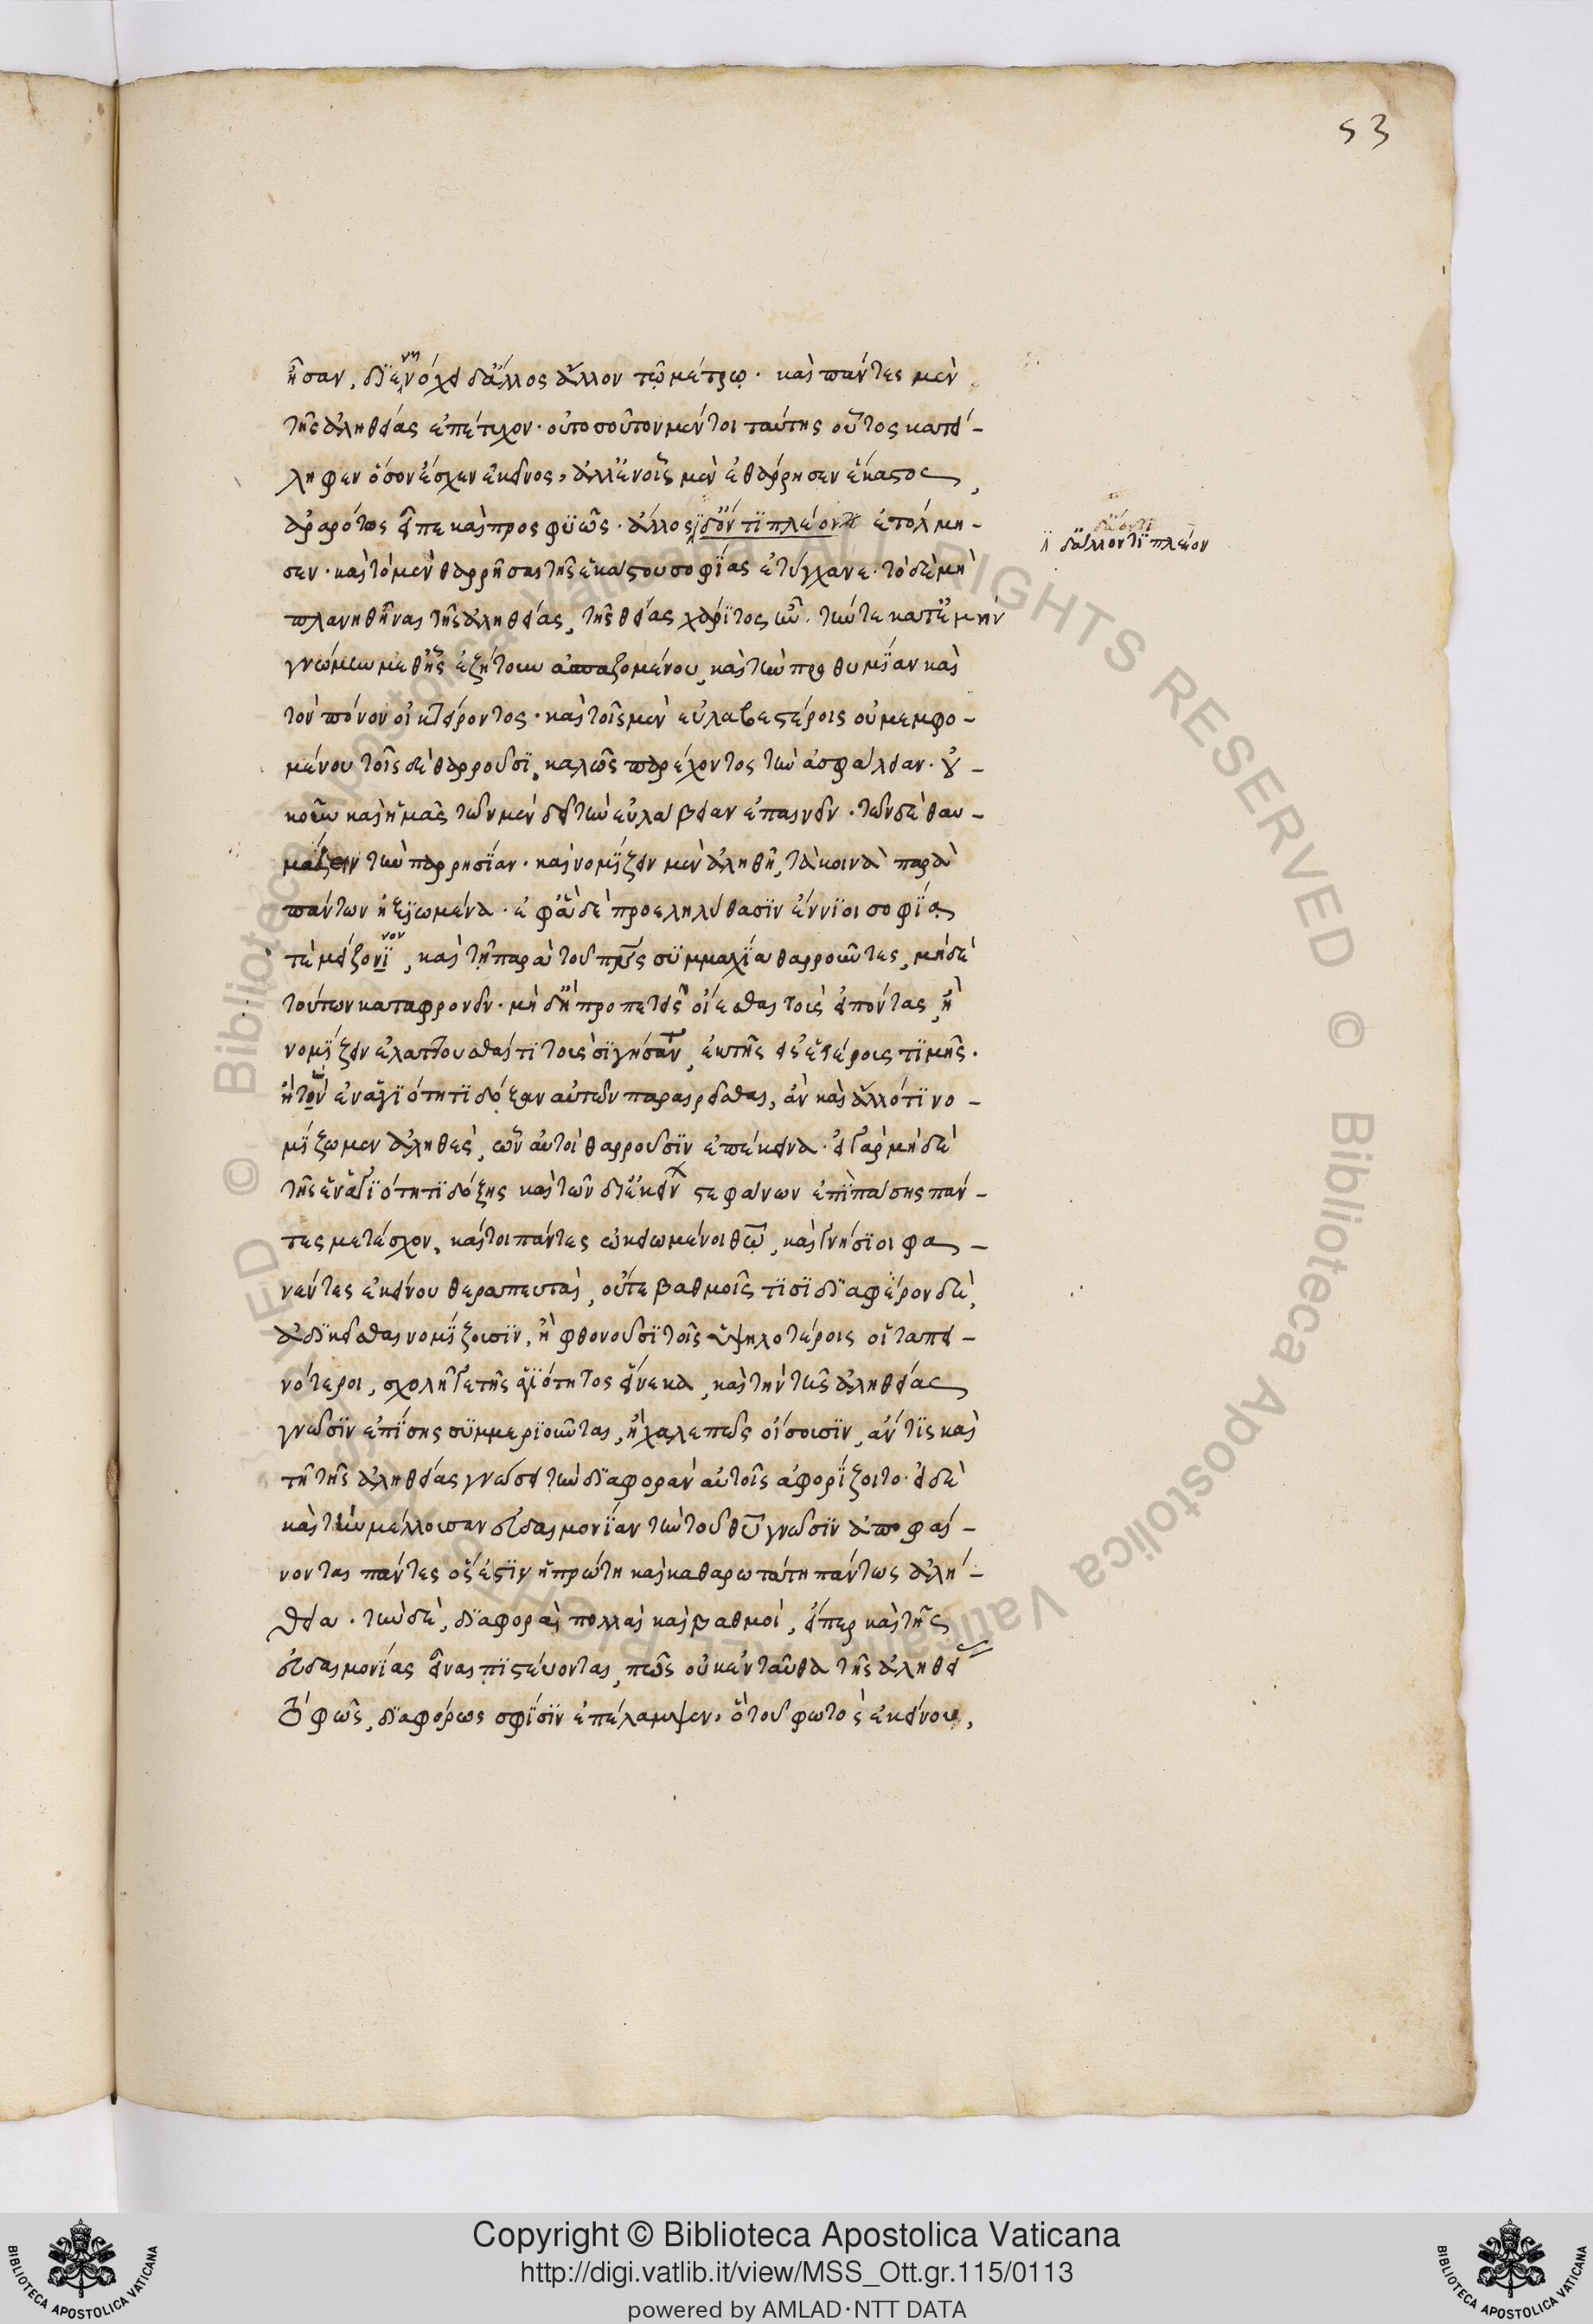 53
ἦσαν, διενηνόχει δ' ἄλλος ἄλλου τῷ μέτρῳ. καὶ πάντες μὲν
τῆς ἀληθείας ἐπέτυχον. οὐ τοσοῦτον μέντοι ταύτης οὗτος κατεί-
ληφεν ὅσον ἔσχεν ἐκεῖνος, ἀλλ' ἐν οἷς μὲν ἐθάρρησεν ἕκαστος,
ἀραρότως εἶπε καὶ προσφυῶς. ἄλλος δ' ὄντι πλέον ἐτόλμη-
σεν. καὶ τὸ μὲν θαρρῆσαι τῆς ἑκάστου σοφίας ἐτύγχανε. τὸ δὲ μὴ
πλανηθῆναι τῆς ἀληθείας, τῆς θείας χάριτος ἦν. τήν τε κατ' ἐμὴν
γνώμην μεθ' ἧς ἐζήτουν ἀσπαζομένου, καὶ τὴν προθυμίαν καὶ
τὸν πόνον οἰκτείροντος. καὶ τοῖς μὲν εὐλαβεστέροις οὐ μεμφο-
μένου τοῖς δὲ θαρροῦσι, καλῶς παρέχοντος τὴν ἀσφάλειαν. οὐ-
κοῦν καὶ ἡμᾶς τῶν μὲν δεῖ τὴν εὐλάβειαν ἐπαινεῖν. τῶν δὲ θαυ-
μάζειν τὴν παρρησίαν. καὶ νομίζειν μὲν ἀληθῆ, τὰ κοινὰ παρὰ
πάντων ἠξιωμένα. ἐφ' ἃ δὲ προεληλύθασιν ἔννιοι σοφίᾳ
τε μείζονι νον, καὶ τῇ παρὰ τοῦ πνς συμμαχίᾳ θαρροῦντες, μηδὲ
τούτων καταφρονεῖν. μὴ δ' ἢ προπετεῖς οἴεσθαι τοὺς εἰπόντας, ἢ
νομίζειν ἐλαττοῦσθαί τι τοὺς σιγήσαντας, ἐκ τῆς εἰς ἑτέρους τιμῆς.
ἢ τὴν ἐν ἁγιότητι δόξαν αὐτῶν παραιρεῖσθαι, ἂν καὶ ἄλλό τι νο-
μίζωμεν ἀληθὲς, ὧν αὐτοὶ θαρροῦσιν ἐπέκεινα. εἰ γὰρ μὴ δὲ
τῆς ἐν ἁγιότητι δόξης καὶ τῶν δι' ἐκείνην στεφάνων ἐπίσης πάν-
τες μετέσχον, καίτοι πάντες ᾠκειωμένοι θῷ, καὶ γνήσιοι φα-
νέντες ἐκείνου θεραπευταὶ, οὔτε βαθμοῖς τισὶ διαφέρον δὲ,
ἀδικεῖσθαι νομίζουσιν, ἢ φθονοῦσι τοῖς ὑψηλοτέροις οἱ ταπει-
νότεροι, σχολῇ γε τῆς ἁγιότητος εἵνεκα, καὶ τὴν τῆς ἀληθείας
γνῶσιν ἐπίσης συμμεριοῦνται, ἢ χαλεπῶς οἴσουσιν, ἄν τις καὶ
τῇ τῆς ἀληθείας γνώσει τὴν διαφορὰν αὐτοῖς ἀφορίζοιτο. εἰ δὲ
καὶ τὴν μέλλουσαν εὐδαιμονίαν τὴν τοῦ θυ γνῶσιν ἀποφαί-
νονται πάντες ὅς ἐστιν ἡ πρώτη καὶ καθαρωτάτη πάντως ἀλή-
θεια. τὴν δὲ, διαφοραὶ πολλαὶ καὶ βαθμοὶ, εἴπερ καὶ τῆς
εὐδαιμονίας εἶναι πιστεύονται, πῶς οὐκ ἐνταῦθα τῆς ἀληθεί
τὸ φῶς, διαφόρως σφίσιν ἐπέλαμψεν, ὃ τοῦ φωτὸς ἐκείνου,
δ' ἔοντι
δ' ἄλλον τι πλεῖον
Copyright © Biblioteca Apostolica Vaticana
http://digi.vatlib.it/view/MSS_Ott.gr.115/0113
powered by AMLAD·NTT DATA
BIBLIOTECA APOSTOLICA VATICANA
BIBLIOTECA APOSTOLICA VATICANA